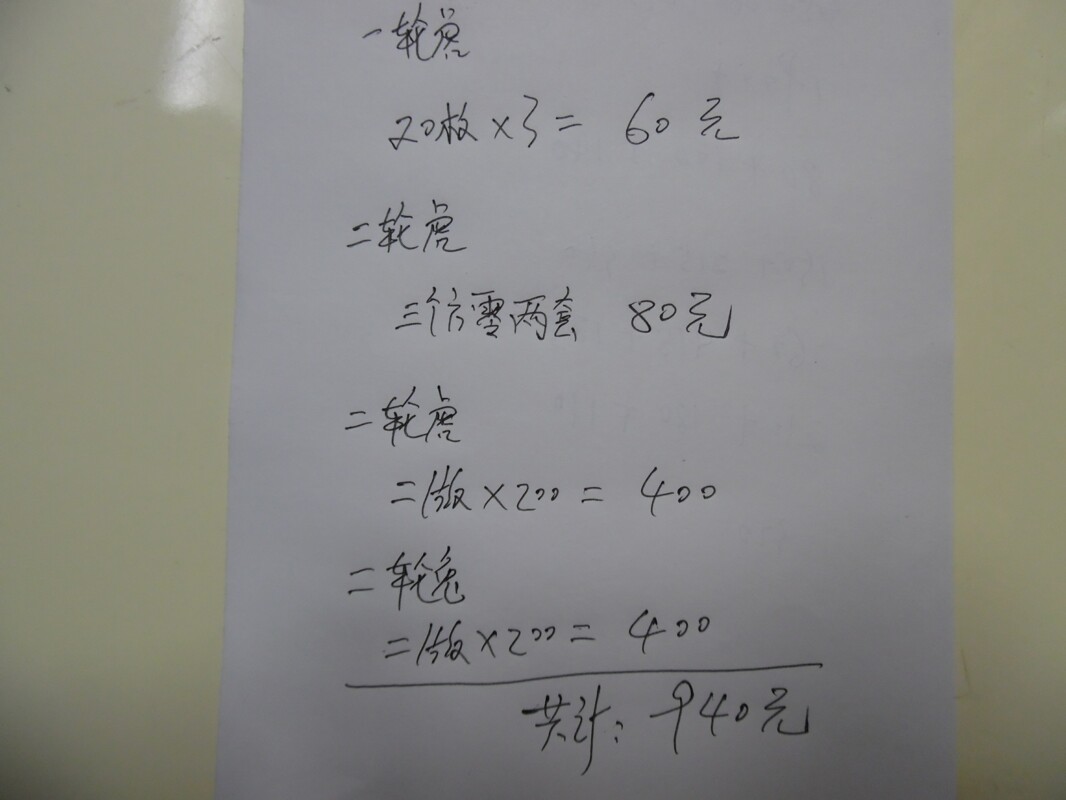 一轮虎
20枚×3= 60元
二轮虎
三个方零两套 80元
二轮虎
二版×200= 400
二轮兔
二版×200= 400
共计: 940元